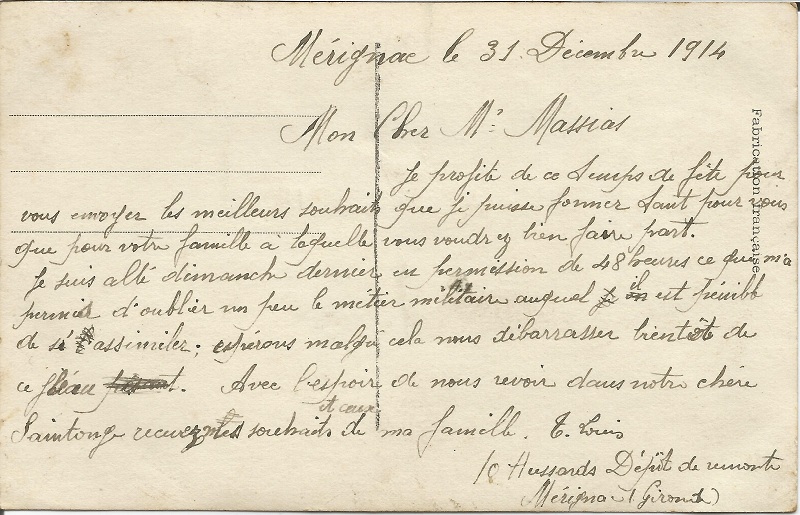 Mérignac le 31 Décembre 1914
Mon Cher Mr Massias
Je profite de ce temps de fête pour
vous envoyer les meilleurs souhaits que je puisse former tant pour vous
que pour votre famille à laquelle vous voudrez bien faire part.
Je suis allé dimanche dernier en permission de 48 heures ce qui m'a
permis d'oublier un peu le métier militaire auquel il est pénible
de s'assimiler; espérons malgré cela nous débarrasser bientôt de
ce fléau. Avec l'espoir de nous revoir dans notre chère
et ceux
Saintonge recevez souhaits de ma famille. T. Louis
10 Hussards Dépôt de remonte
Mérignac (Gironde)
Fabrication Française